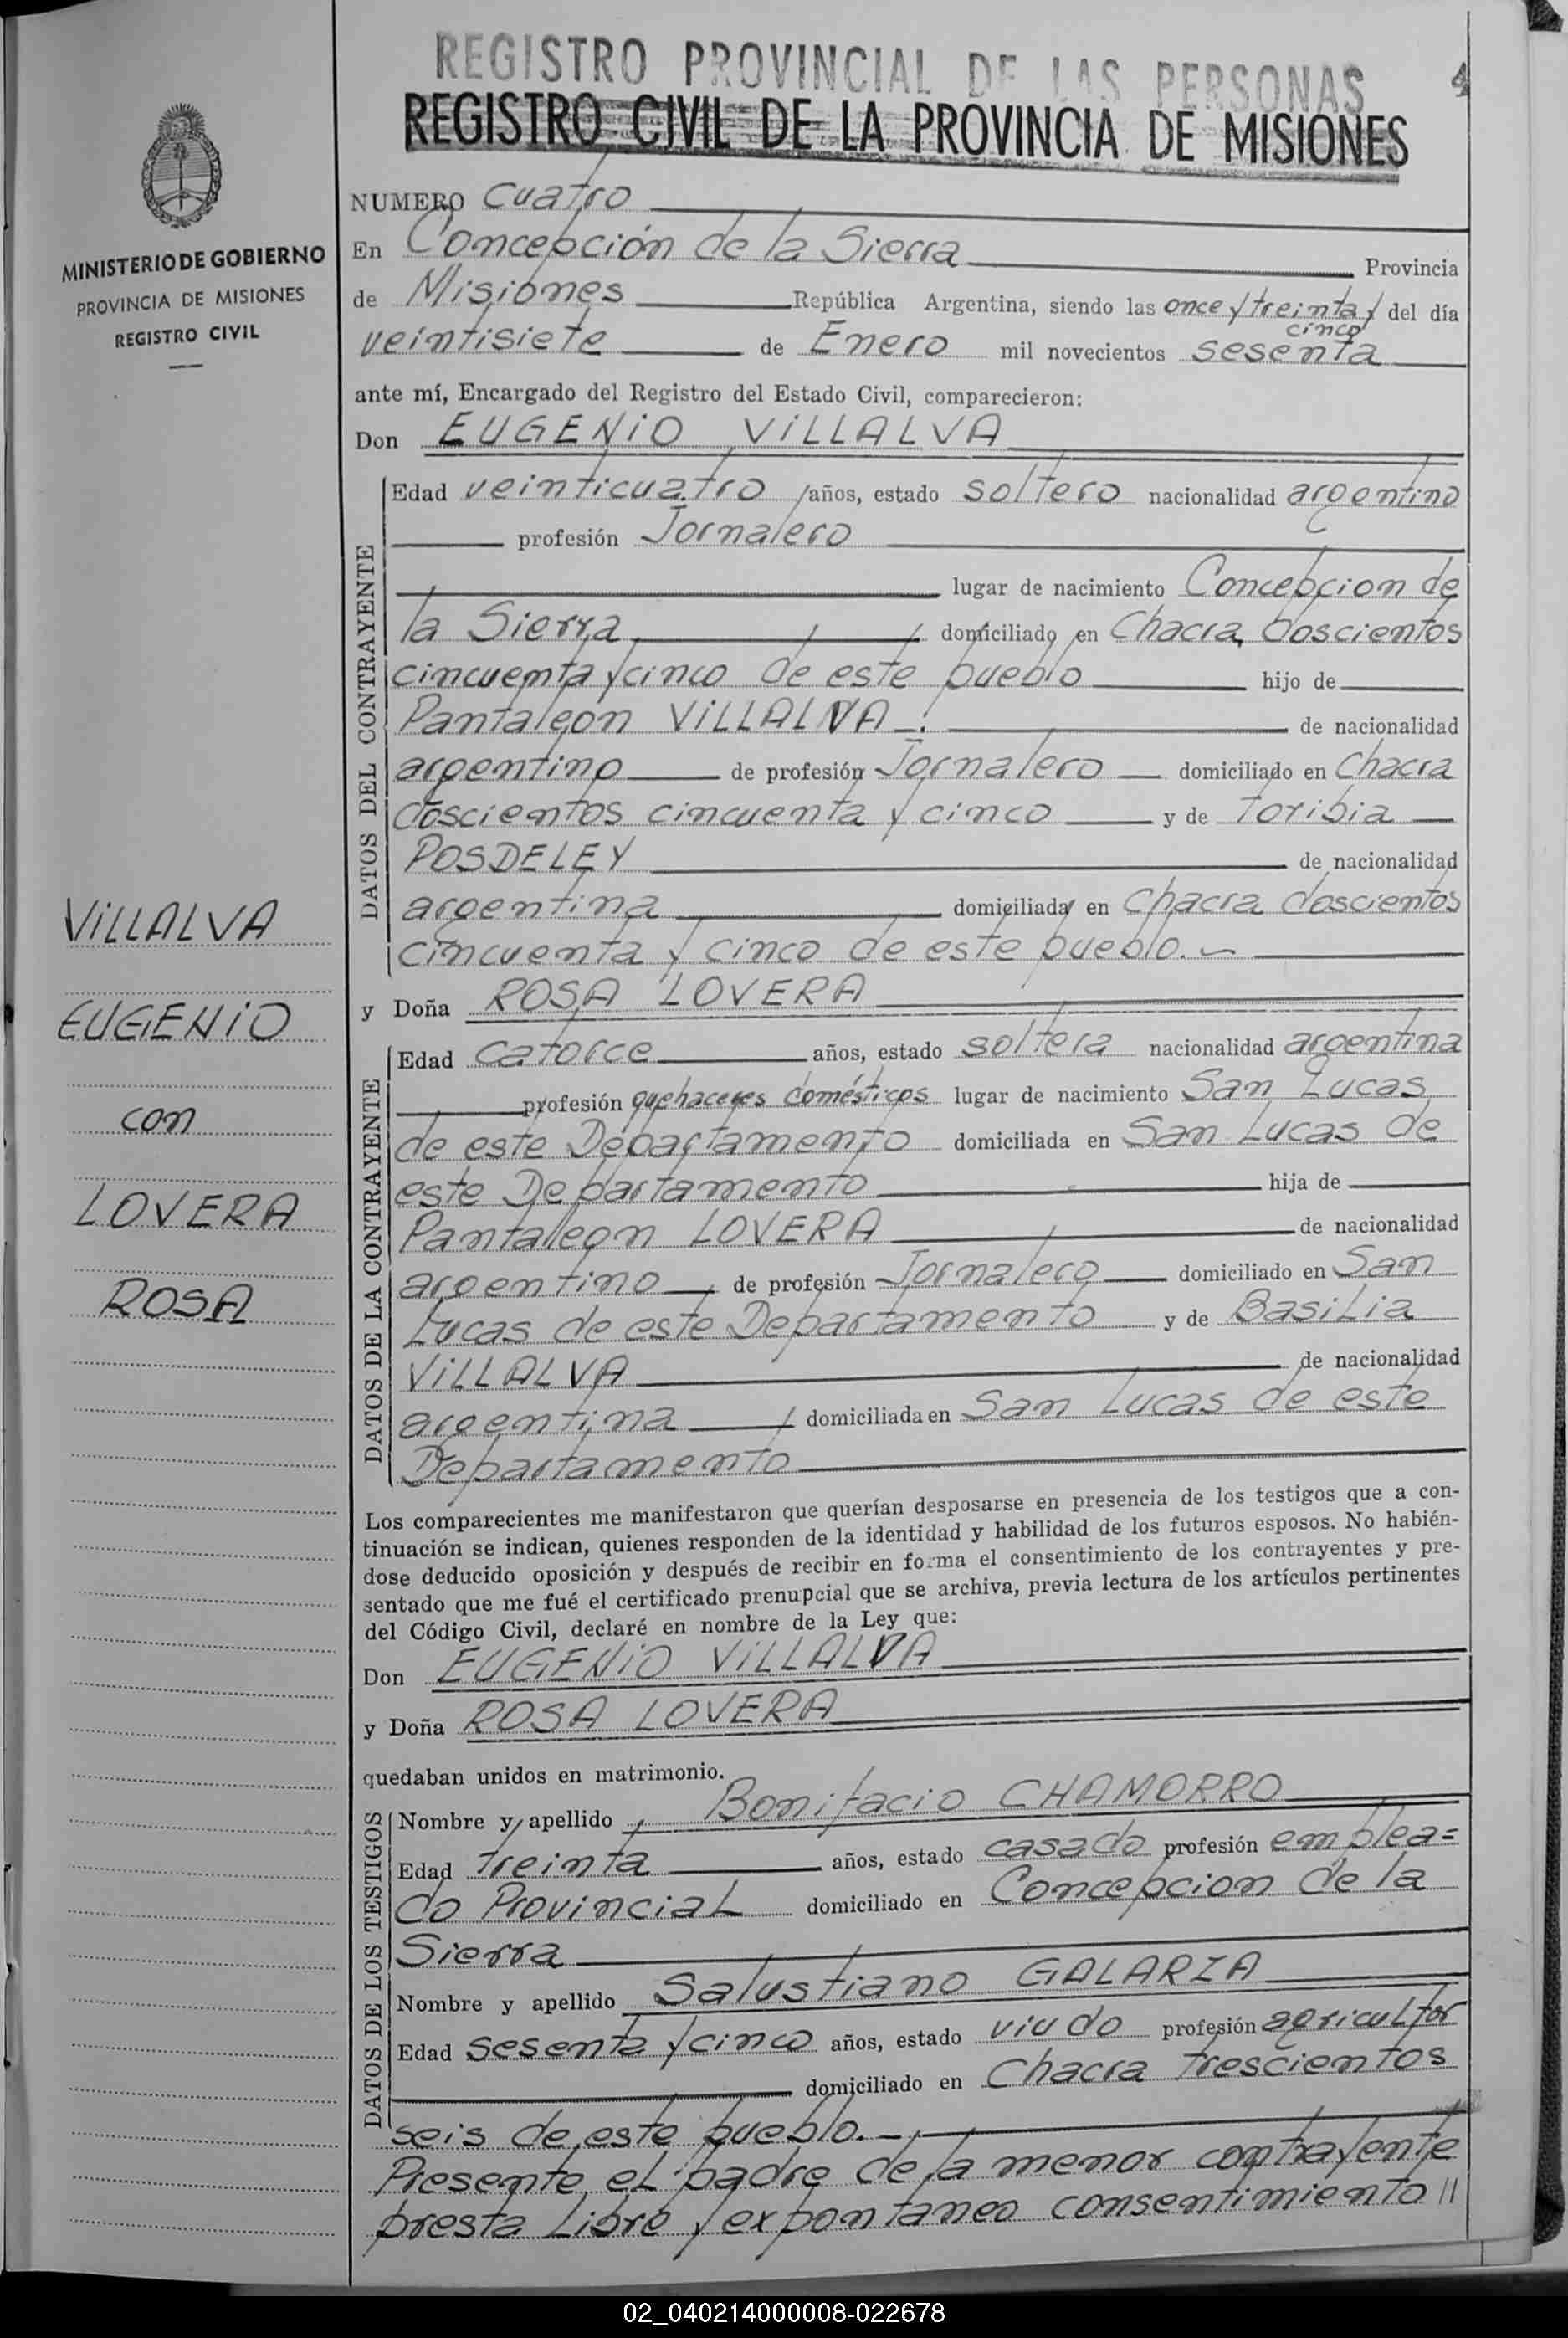 REGISTRO PROVINCIAL DE LAS PERSONAS
4
REGISTRO CIVIL DE LA PROVINCIA DE MISIONES
MINISTERIO DE GOBIERNO
PROVINCIA DE MISIONES
REGISTRO CIVIL
NUMERO Cuatro
En Concepción de la Sierra Provincia
de Misiones República Argentina, siendo las once y treinta y cinco del día
veintisiete de Enero mil novecientos sesenta
ante mí, Encargado del Registro del Estado Civil, comparecieron:
Don EUGENIO VILLALVA
DATOS DEL CONTRAYENTE
Edad veinticuatro años, estado soltero nacionalidad argentino
profesión Jornalero
lugar de nacimiento Concepcion de
la Sierra domiciliado en Chacra doscientos
cincuenta y cinco de este pueblo hijo de
Pantaleon VILLALVA de nacionalidad
argentino de profesión Jornalero domiciliado en Chacra
doscientos cincuenta y cinco y de Toribia
POSDELEY de nacionalidad
argentina domiciliada en Chacra doscientos
cincuenta y cinco de este pueblo.
y Doña ROSA LOVERA
DATOS DE LA CONTRAYENTE
Edad catorce años, estado soltera nacionalidad argentina
profesión quehaceres domésticos lugar de nacimiento San Lucas
de este Departamento domiciliada en San Lucas de
este Departamento hija de
Pantaleon LOVERA de nacionalidad
argentino de profesión Jornalero domiciliado en San
Lucas de este Departamento y de Basilia
VILLALVA de nacionalidad
argentina domiciliada en San Lucas de este
Departamento
VILLALVA
EUGENIO
con
LOVERA
ROSA
Los comparecientes me manifestaron que querían desposarse en presencia de los testigos que a con-
tinuación se indican, quienes responden de la identidad y habilidad de los futuros esposos. No habién-
dose deducido oposición y después de recibir en forma el consentimiento de los contrayentes y pre-
sentado que me fué el certificado prenupcial que se archiva, previa lectura de los artículos pertinentes
del Código Civil, declaré en nombre de la Ley que:
Don EUGENIO VILLALVA
y Doña ROSA LOVERA
quedaban unidos en matrimonio.
DATOS DE LOS TESTIGOS
Nombre y apellido Bonifacio CHAMORRO
Edad treinta años, estado casado profesión emplea=
do Provincial domiciliado en Concepcion de la
Sierra
Nombre y apellido Salustiano GALARZA
Edad sesenta y cinco años, estado viudo profesión agricultor
domiciliado en Chacra trescientos
seis de este pueblo.
Presente el padre de la menor contrayente
presta libre y expontaneo consentimiento //
02_040214000008-022678